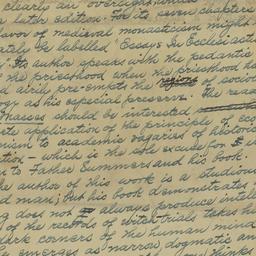 clearly an oversight
a later edition. For its seven chapters
flavor of medieval monasticism might
ately be labelled "Essays In Ecclesiasti
Its author speaks with the pedantic
the priesthood when the priesthood ha
d airily pre-empts the regions social
ogy as his especial preserve. The reas
Masses should be interested
te application of the principle of ego
nism to academic vagaries of historic
ction — which is the sole excuse for
to Father Summers and his book.
he author of this work is a studious
d man; but his book demonstrates
g does not always produce intell
of the records of witch-trials takes h
dark corners of the human mind
emerge as narrow, dogmatic an
thinks